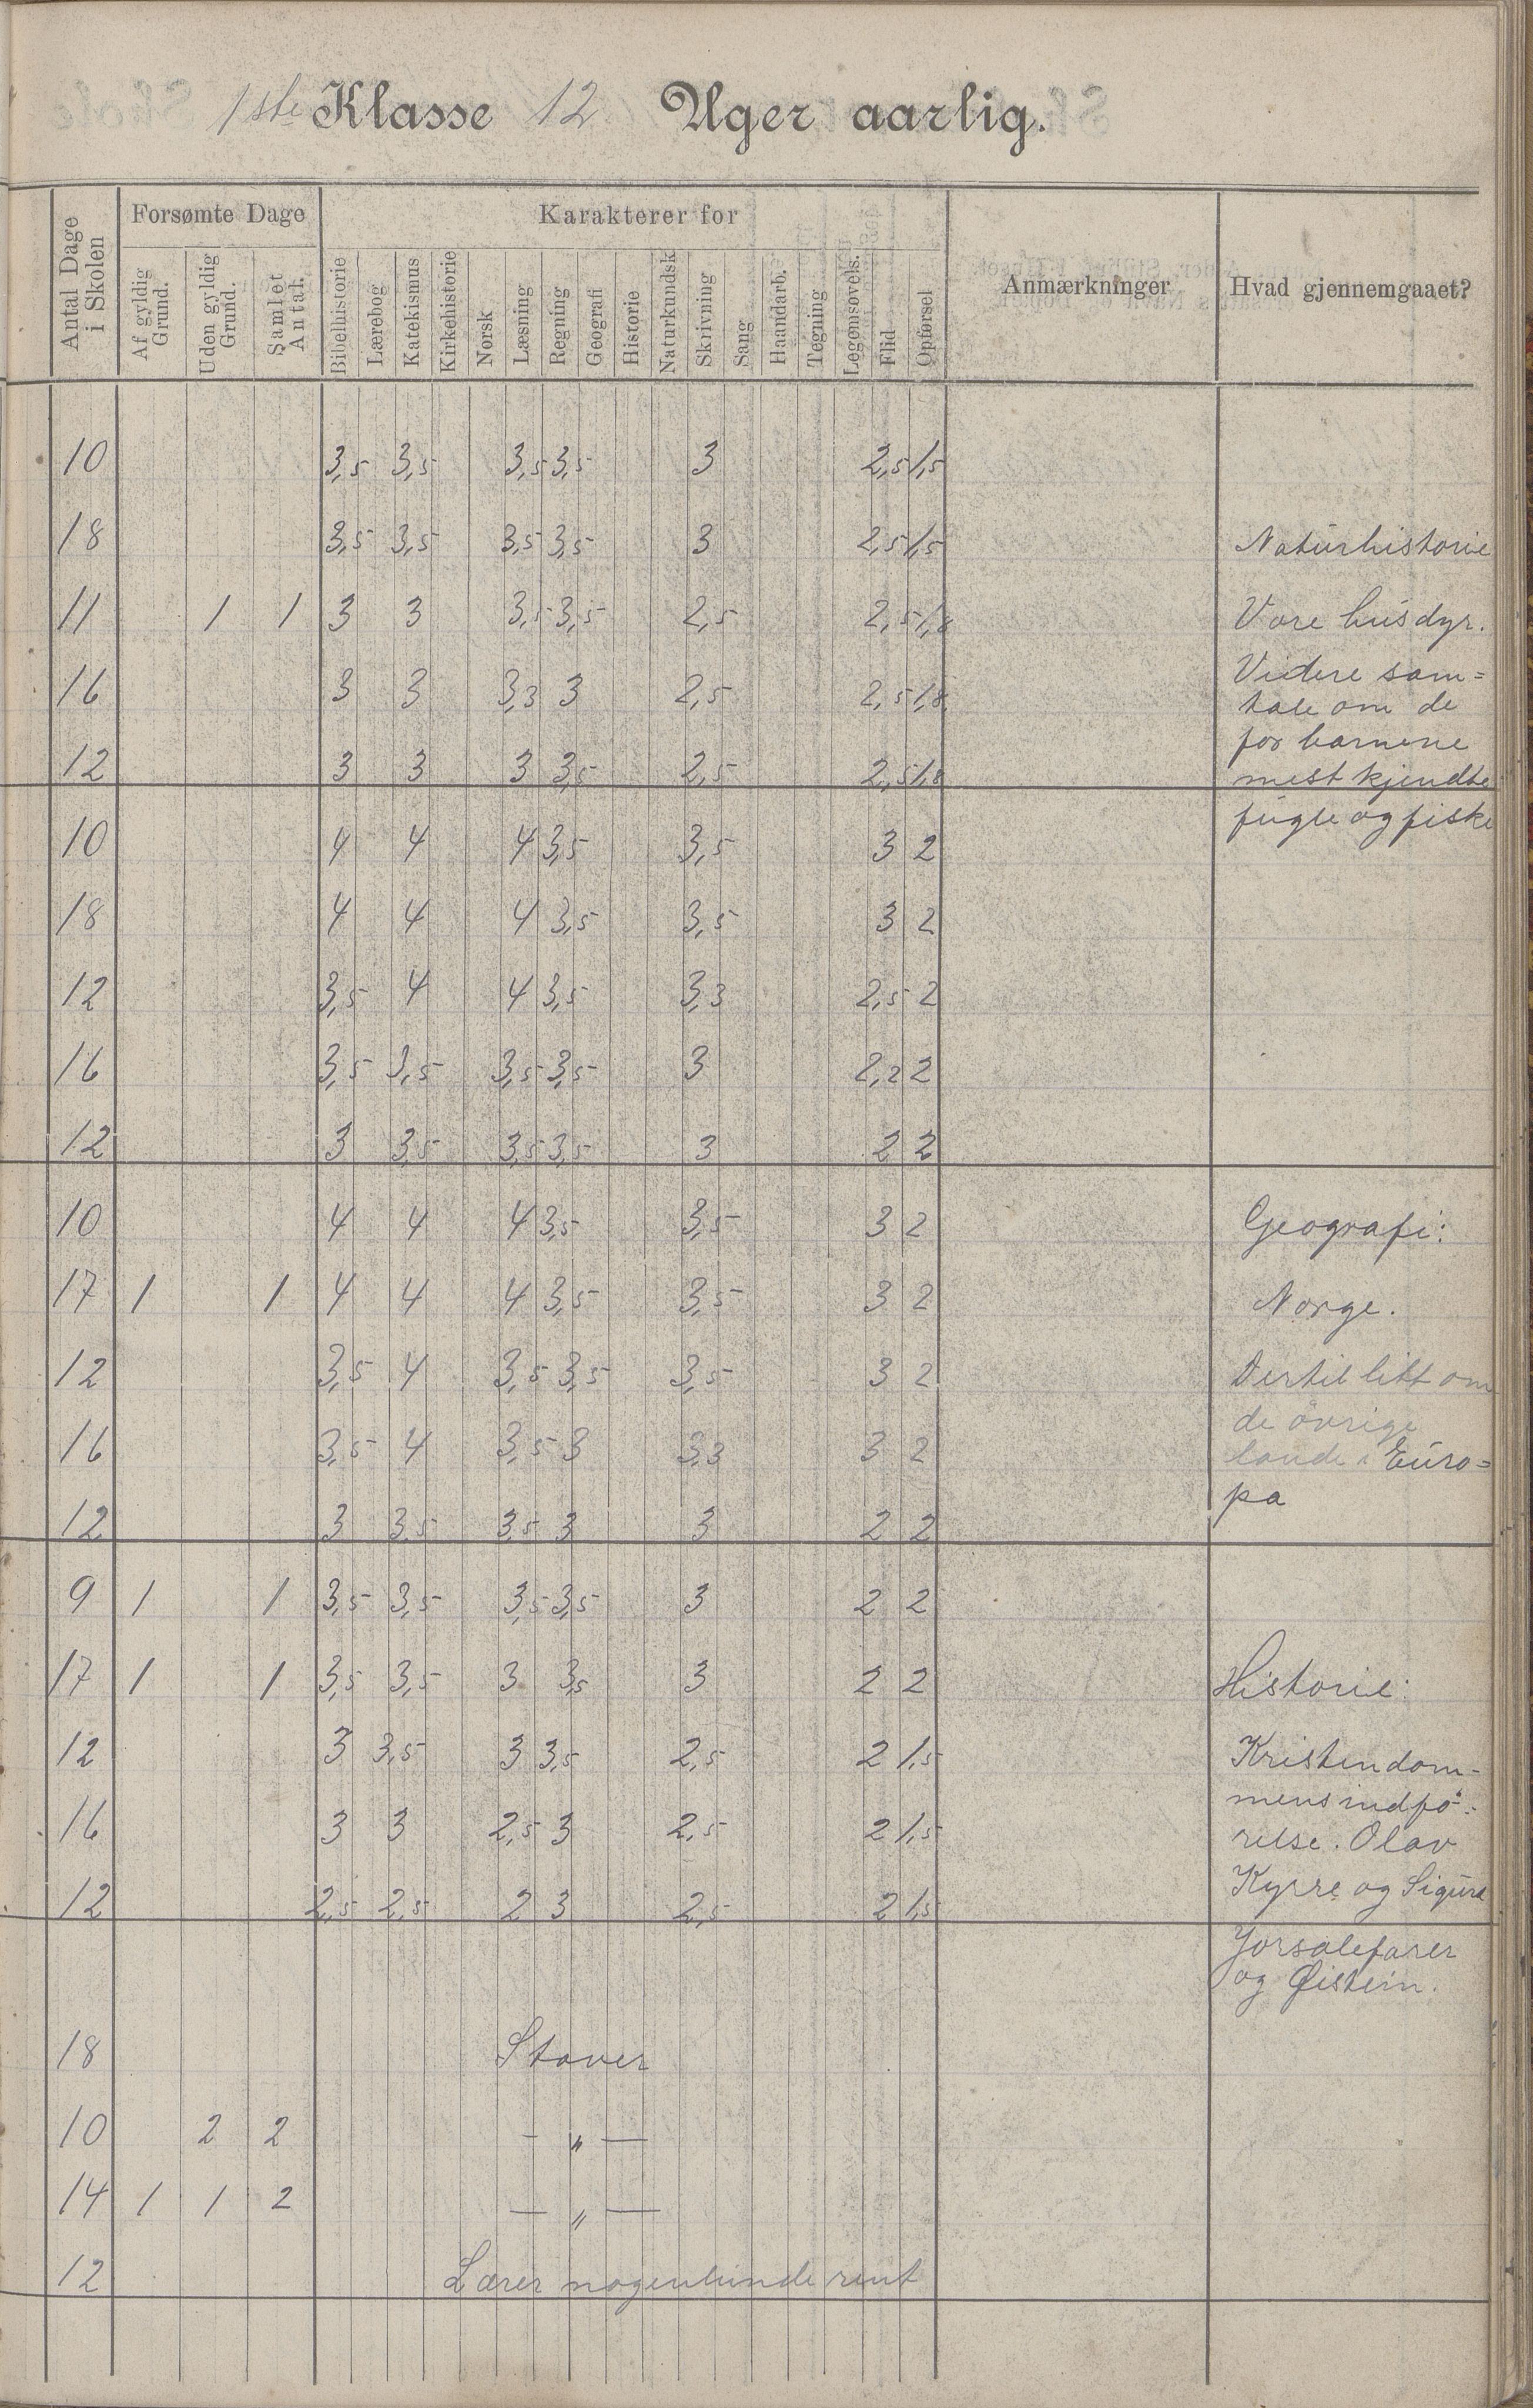 1ste Klasse 12 Uger aarlig.
Antal Dage i Skolen
Forsømte Dage
Karakterer for
Anmærkninger
Hvad gjennemgaaet?
Af gyldig Grund.
Uden gyldig Grund.
Samlet Antal.
Bibelhistorie
Lærebog
Katekismus
Kirkehistorie
Norsk
Læsning
Regning
Geografi
Historie
Naturkundsk
Skrivning
Sang
Haandarb.
Tegning
Legemsøvels.
Flid
Opførsel
10 3,5 3,5 3,5 3,5 3 2,5 1,5
18 3,5 3,5 3,5 3,5 3 2,5 1,5 Naturhistorie
11 1 1 3 3 3,5 3,5 2,5 2,5 1,8 Vore husdyr.
Videre sam=
16 3 3 3,3 3 2,5 2,5 1,8 tale om de
for barnene
12 3 3 3 3,5 2,5 2,5 1,8 mest kjendte
fugle og fiske
10 4 4 4 3,5 3,5 3 2
18 4 4 4 3,5 3,5 3 2
12 3,5 4 4 3,5 3,3 2,5 2
16 3,5 3,5 3,5 3,5 3 2,2 2
12 3 3,5 3,5 3,5 3 2 2
10 4 4 4 3,5 3,5 3 2 Geografi:
17 1 1 4 4 4 3,5 3,5 3 2 Norge.
12 3,5 4 3,5 3,5 3,5 3 2 Dertil litt om
de øvrige
16 3,5 4 3,5 3 3,3 3 2 lande i Euro=
pa
12 3 3,5 3,5 3 3 2 2
9 1 1 3,5 3,5 3,5 3,5 3 2 2
17 1 1 3,5 3,5 3 3,5 3 2 2 Historie:
12 3 3,5 3 3,5 2,5 2 1,5 Kristendom-
mens indfø-
16 3 3 2,5 3 2,5 2 1,5 relse. Olav
Kyrre og Sigurd
12 2,5 2,5 2 3 2,5 2 1,5
Jorsalefarer
og Øistein.
18 Staver
10 2 2 — " —
14 1 1 2 — " —
12 Læser nogenlunde rent